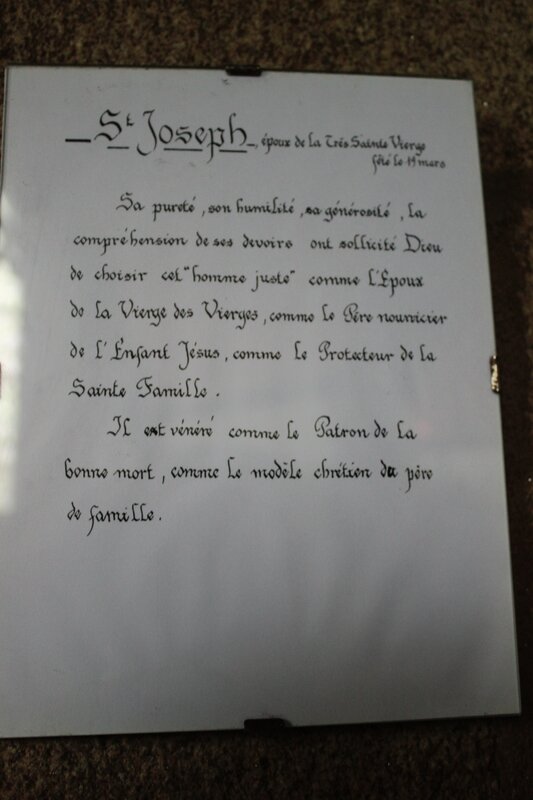 St Joseph, époux de la Très Sainte Vierge
fêté le 19 mars
Sa pureté, son humilité, sa générosité, la
compréhension de ses devoirs ont sollicité Dieu
de choisir cet "homme juste" comme l'Époux
de la Vierge des Vierges, comme le Père nourricier
de l'Enfant Jésus, comme le Protecteur de la
Sainte Famille.
Il est vénéré comme le Patron de la
bonne mort, comme le modèle chrétien du père
de famille.